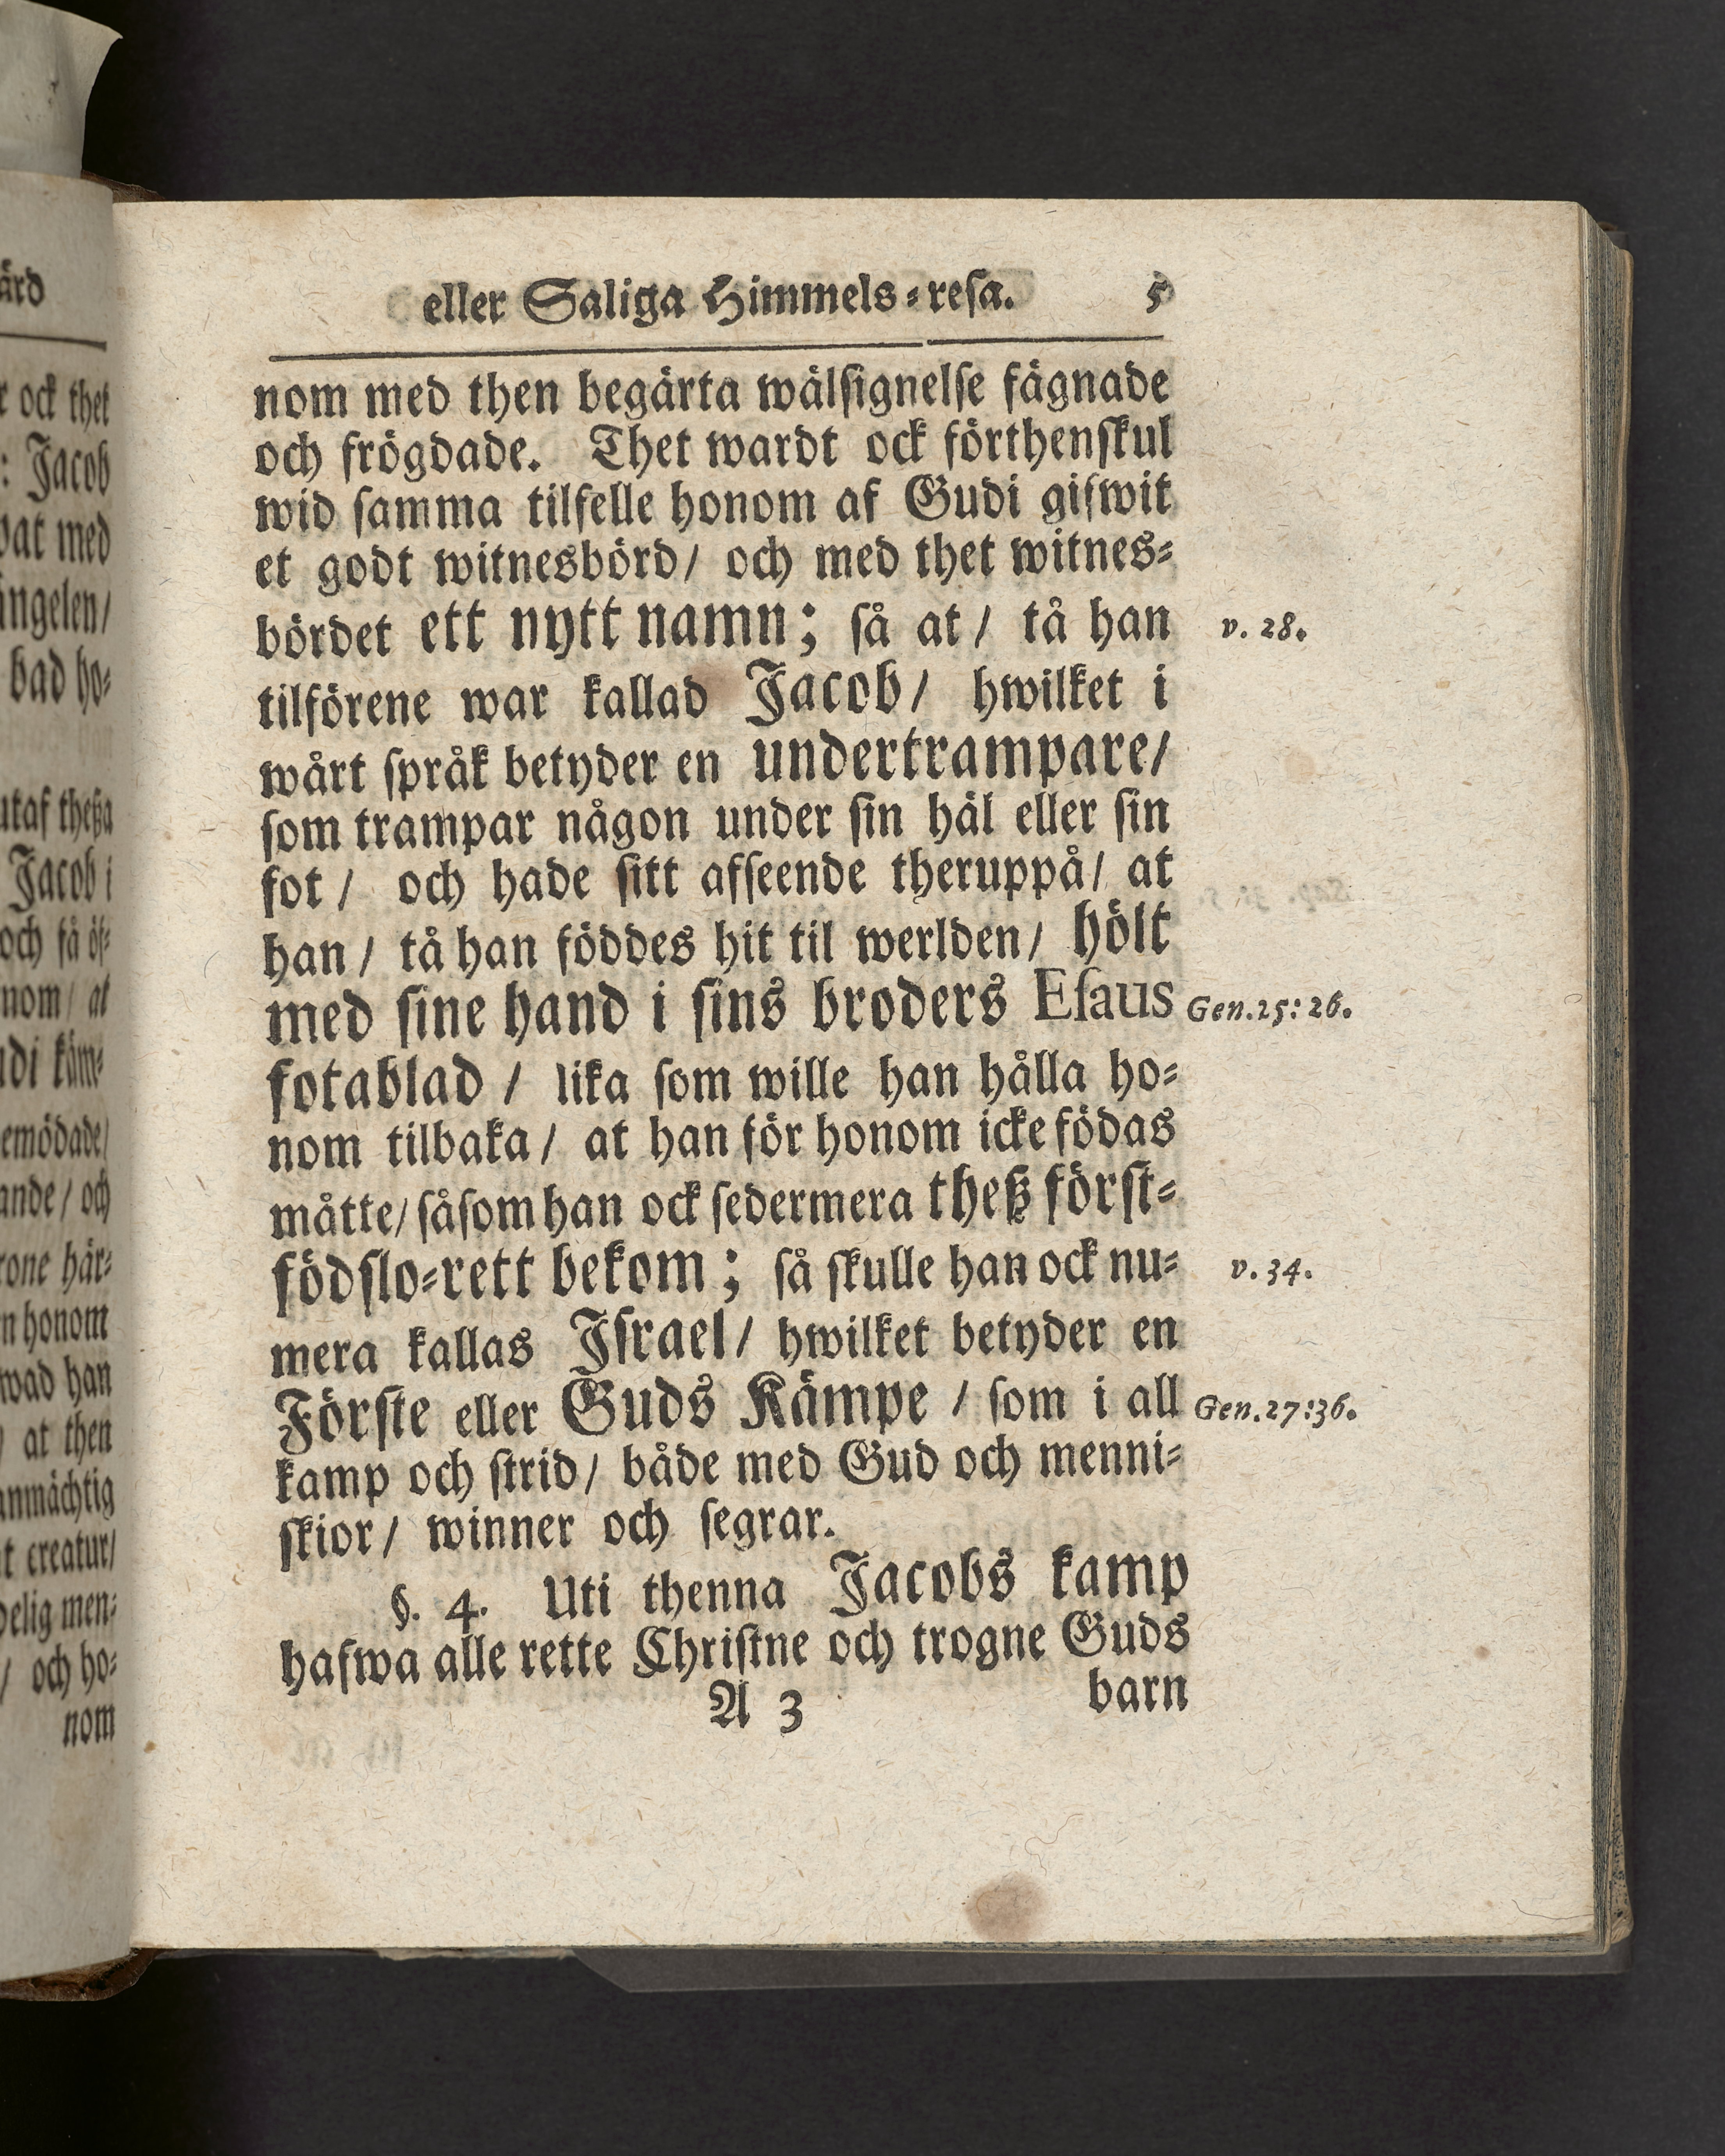 eller Saliga Himmels-resa. 5
nom med then begärta wälsignelse fägnade
och frögdade. Thet wardt ock förthenskul
wid samma tilfelle honom af Gudi gifwit
et godt witnesbörd/ och med thet witnes-
bördet ett nytt namn; så at/ tå han v. 28.
tilförene war kallad Jacob/ hwilket i
wårt språk betyder en undertrampare/
som trampar någon under sin häl eller sin
fot/ och hade sitt afseende theruppå/ at
han/ tå han föddes hit til werlden/ hölt
med sine hand i sins broders Esaus Gen. 25: 26.
fotablad/ lika som wille han hålla ho-
nom tilbaka/ at han för honom icke födas
måtte/ såsom han ock sedermera theß först-
födslo-rett bekom; så skulle han ock nu- v. 34.
mera kallas Israel/ hwilket betyder en
Förste eller Guds Kämpe/ som i all Gen. 27: 36.
kamp och strid/ både med Gud och menni-
skior/ winner och segrar.
§. 4. Uti thenna Jacobs kamp
hafwa alle rette Christne och trogne Guds
A 3 barn
ärd
ock thet
: Jacob
med
ängelen/
bad ho-
utaf theßa
Jacob i
och så öf-
nom/ at
emödade/
ande/ och
n honom
wad han
at then
anmächtig
t creatur/
delig men-
/ och ho-
nom